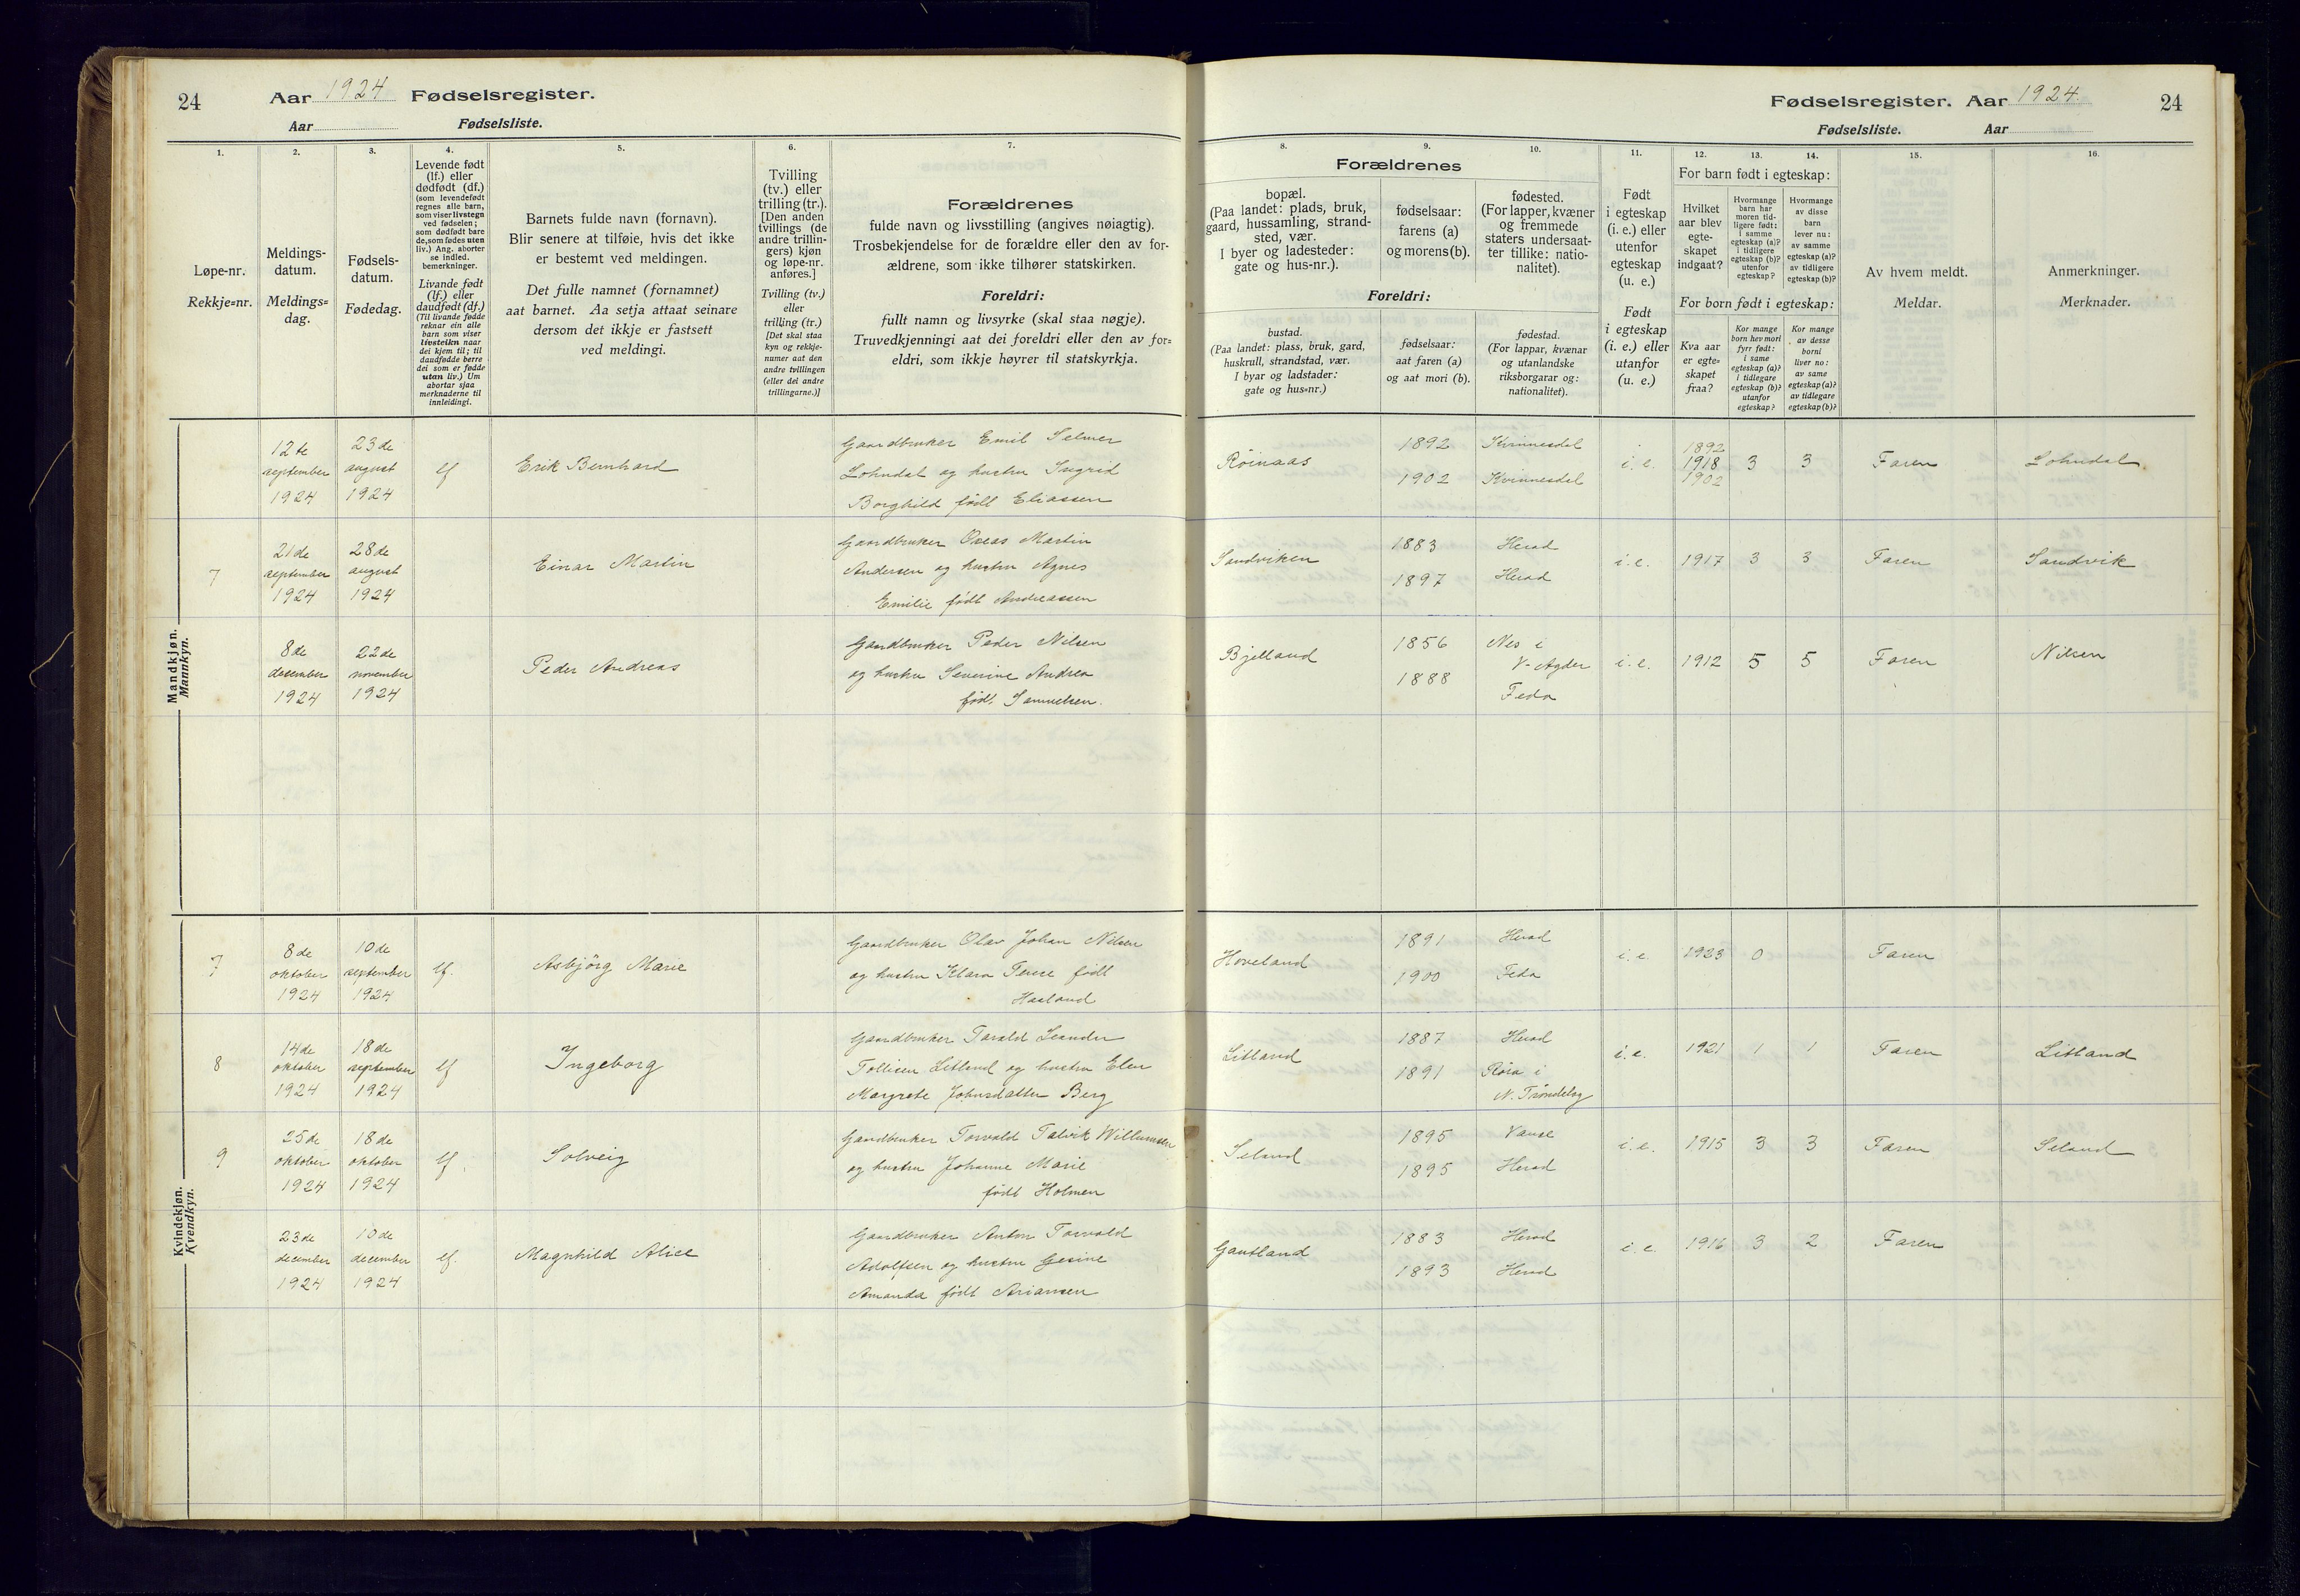 24
Aar 1924 Fødselsregister.
Aar Fødselsliste.
Fødselsregister. Aar 1924.
Fødselsliste. Aar
24
1. 2. 3. 4. 5. 6. 7.
Løpe-nr.
Rekkje=nr.
Meldings-
datum.
Meldings=
dag.
Fødsels-
datum.
Fødedag.
Levende født
(lf.) eller
dødfødt (df.)
(som levendefødt
regnes alle barn,
som viser livstegn
ved fødselen;
som dødfødt bare
de, som fødes uten
liv.) Ang. aborter
se indled.
bemerkninger.
Livande født
(lf.) eller
daudfødt (df.)
(Til livande fødde
reknar ein alle
barn som viser
livsteikn naar
dei kjem til; til
daudfødde berre
dei som er fødde
utan liv.) Um
abortar sjaa
merknaderne til
innleidingi.
Barnets fulde navn (fornavn).
Blir senere at tilføie, hvis det ikke
er bestemt ved meldingen.
Det fulle namnet (fornamnet)
aat barnet. Aa setja attaat seinare
dersom det ikkje er fastsett
ved meldingi.
Tvilling
(tv.) eller
trilling (tr.).
[Den anden
tvillings (de
andre trillin-
gers) kjøn
og løpe-nr.
anføres.]
Tvilling (tv.)
eller
trilling (tr.)
[Det skal staa
kyn og rekkje-
numer aat den
andre tvillingen
(eller dei andre
trillingarne.)]
Forældrenes
fulde navn og livsstilling (angives nøiagtig).
Trosbekjendelse for de forældre eller den av for-
ældrene, som ikke tilhører statskirken.
Foreldri:
fullt namn og livsyrke (skal staa nøgje).
Truvedkjenningi aat dei foreldri eller den av for=
eldri, som ikkje høyrer til statskyrkja.
8. 9. 10. 11. 12. 13. 14. 15. 16.
Forældrenes
bopæl.
(Paa landet: plads, bruk,
gaard, hussamling, strand-
sted, vær.
I byer og ladesteder:
gate og hus-nr.).
fødselsaar:
farens (a)
og morens (b).
fødested.
(For lapper, kvæner
og fremmede
staters undersaat-
ter tillike: natio-
nalitet).
Foreldri:
bustad.
(Paa landet: plass, bruk, gard,
huskrull, strandstad, vær.
I byar og ladstader:
gate og hus=nr.)
fødselsaar:
aat faren (a)
og aat mori (b).
fødestad.
(For lappar, kvænar
og utanlandske
riksborgarar og:
nationalitet).
Født
i egteskap
(i. e.) eller
utenfor
egteskap
(u. e.)
Født
i egteskap
(i. e.) eller
utanfor
(u. e.)
For barn født i egteskap:
Hvilket
aar blev
egte-
skapet
indgaat?
Hvormange
barn har
moren tid-
ligere født:
i samme
egteskap (a)?
i tidligere
egteskap (b)?
utenfor
egteskap?
Hvormange
av disse
barn
lever nu:
av samme
egteskap (a)?
av tidligere
egteskap (b)?
For born født i egteskap:
Kva aar
er egte=
skapet
fraa?
Kor mange
born hev mori
fyrr født:
i same
egteskap (a)?
i tidlegare
egteskap (b)?
utanfor
egteskap?
Kor mange
av desse
borni
liver no:
av same
egteskap (a)?
av tidlegare
egteskap (b)?
Av hvem meldt.
Meldar.
Anmerkninger.
Merknader.
Mandkjøn.
Mannkyn.
12te september 1924
23de august 1924
lf
Erik Bernhard
Gaardbruker Emil Selmer
Lohndal og hustru Ingrid
Borghild født Eliassen
Röinaas
1892 Kvinnesdal
1902 Kvinnesdal
i. e.
1892
1918
1902
3 3 Faren Lohndal
7
21de september 1924
28de august 1924
Einar Martin
Gaardbruker Oseas Martin
Andersen og hustru Agnes
Emilie født Andreassen
Sandviken
1883 Herad
1897 Herad
i. e. 1917 3 3 Faren Sandvik
8de desember 1924
22de november 1924
Peder Andreas
Gaardbruker Peder Nilsen
og hustru Severine Andrea
født Samuelsen.
Bjelland
1856 Nes i
V-Agder
1888 Feda
i. e. 1912 5 5 Faren Nilsen
Kvindekjøn.
Kvendkyn.
7
8de oktober 1924
10de september 1924
lf.
Asbjörg Marie
Gaardbruker Olav Johan Nilsen
og hustru Klara Tense født
Haaland
Hoveland
1891 Herad
1900 Feda
i. e. 1923 0 Faren
8
14de oktober 1924
18de september 1924
lf
Ingeborg
Gaardbruker Tarald Leander
Tollisen Litland og hustru Elen
Margrete Johnsdatter Berg
Litland
1887 Herad
1891 Röra i
N. Tröndelag
i. e. 1921 1 1 Faren Litland
9
25de oktober 1924
18de oktober 1924
lf.
Solveig
Gaardbruker Torvald Talvik Willumsen
og hustru Johanne Marie
født Holmen
Seland
1895 Vanse
1895 Herad
i. e. 1915 3 3 Faren Seland
23de december 1924
10de december 1924
lf.
Magnhild Alice
Gaardbruker Anton Torvald
Adolfsen og hustru Gesine
Amanda født Ariansen
Gautland
1883 Herad
1893 Herad
i. e. 1916 3 2 Faren